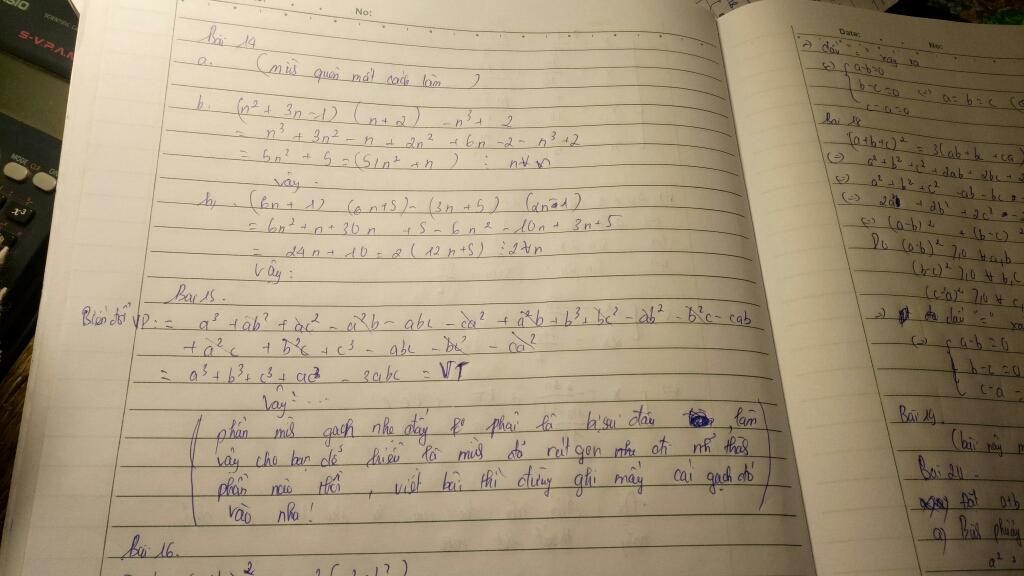 No:
S-V.P.A.M
MODE
ON
x²
Bài 14
a. (mình quên mất cách làm)
b. (n² + 3n - 1) (n + 2) - n³ + 2
= n³ + 3n² - n + 2n² + 6n - 2 - n³ + 2
= 5n² + 5 = (5(n² + n) ⋮ n ∀ n
Vậy.
b, (6n + 1) (n+5) - (3n + 5) (2n - 1)
= 6n² + n + 30n + 5 - 6n² - 10n + 3n + 5
= 24n + 10 = 2 (12n+5) ⋮ 2 ∀n
Vậy:
Bài 15.
Biến đổi VP: = a³ + ab² + ac² - a²b - abc - ca² + a²b + b³ + bc² - ab² - b²c - cab
+ a²c + b²c + c³ - abc - bc² - ca²
= a³ + b³ + c³ - 3abc = VT
Vậy: ...
(phần mình gạch như đấy ko phải là bị sai đâu, làm
vậy cho bạn dễ hiểu là mình đã rút gọn như thế
phần nào thôi, viết bài thì đừng ghi mấy cái gạch đó
vào nha!)
Bài 16.
Date: No:
=> dấu "=" xảy ra
<=> a-b=0
b-c=0 <=> a=b=c
c-a=0
Bài 18
(a+b+c)² = 3(ab+bc+ca)
<=> a² + b² + c² + 2ab + 2bc + 2
<=> a² + b² + c² - ab - bc -
<=> 2a² + 2b² + 2c² - 2
<=> (a-b)² + (b-c)²
Do (a-b)² ≥ 0 ∀ a,b
(b-c)² ≥ 0 ∀ b,c
(c-a)² ≥ 0 ∀ c,
=> dấu "=" xả
<=> a-b=0
b-c=0
c-a=
Bài 19.
(bài này m
Bài 20.
Đặt a+b
a) Bình phương
a² +